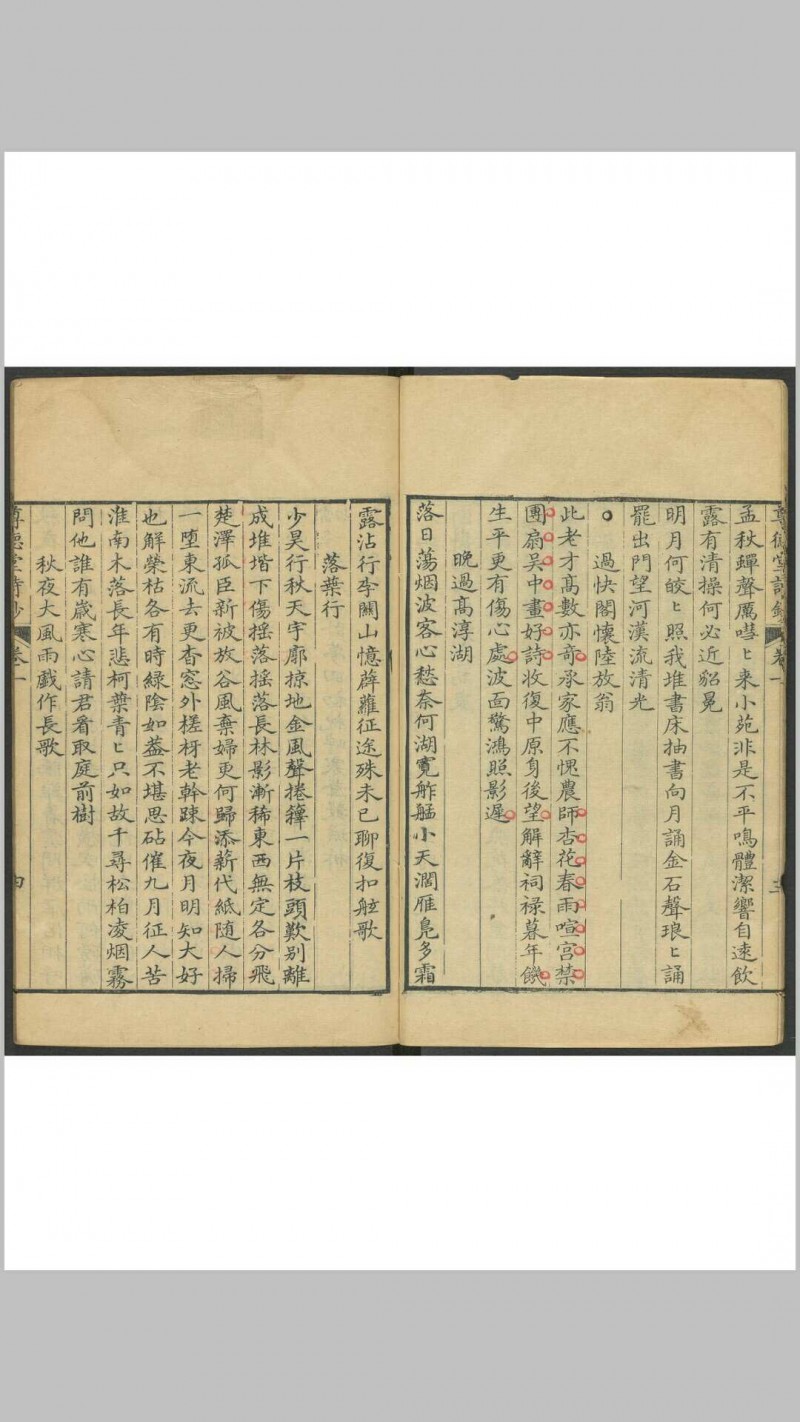 孟秋蟬聲厲嘒〻來小苑非是不平鳴體潔響自速飲
露有清操何必近貂冕
明月何皎〻照我堆書床抽書向月誦金石聲琅〻誦
罷出門望河漢流清光
過快閣懷陸放翁
此老才高數亦奇承家應不愧農師杏花春雨喧宮禁
團扇吳中畫好詩收復中原身後望解辭祠祿暮年饑
生平更有傷心處波面驚鴻照影遲
晚過高淳湖
落日蕩烟波客心愁奈何湖寬舴艋小天濶雁鳧多霜
露沾行李關山憶薜蘿征途殊未已聊復扣舷歌
落葉行
少昊行秋天宇廓掠地金風聲捲籜一片枝頭歎別離
成堆堦下傷搖落搖落長林影漸稀東西無定各分飛
楚澤孤臣新被放谷風棄婦更何歸添薪代紙隨人掃
一墮東流去更杳窓外槎枒老幹踈今夜月明知大好
也解榮枯各有時綠陰如葢不堪思砧催九月征人苦
淮南木落長年悲柯葉青〻只如故千尋松柏凌烟霧
問他誰有嵗寒心請君看取庭前樹
秋夜大風雨戲作長歌
尊德堂詩鈔 卷一 四